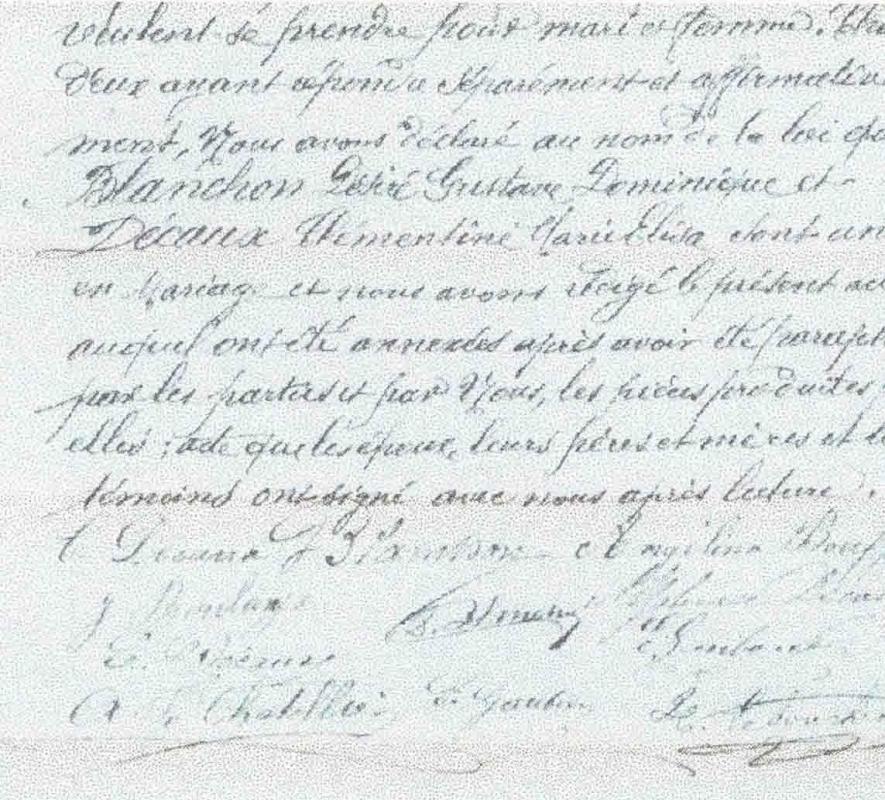 veulent se prendre pour mari et femme.
deux ayant répondu séparément et affirmative
ment, Nous avons déclaré au nom de la loi que
Blanchon Désiré Gustave Dominique et
Décaux Clémentine Marie Elisa sont un
en Mariage et nous avons rédigé le présent ac
auquel ont été annexées après avoir été paraph
par les parties et par Nous, les pièces produites
elles ; acte que les époux, leurs pères et mères et
témoins ont signé avec nous après lecture.
C Decaux J Blanchon Angelina
J
E.
A Chatellier E. Gautier